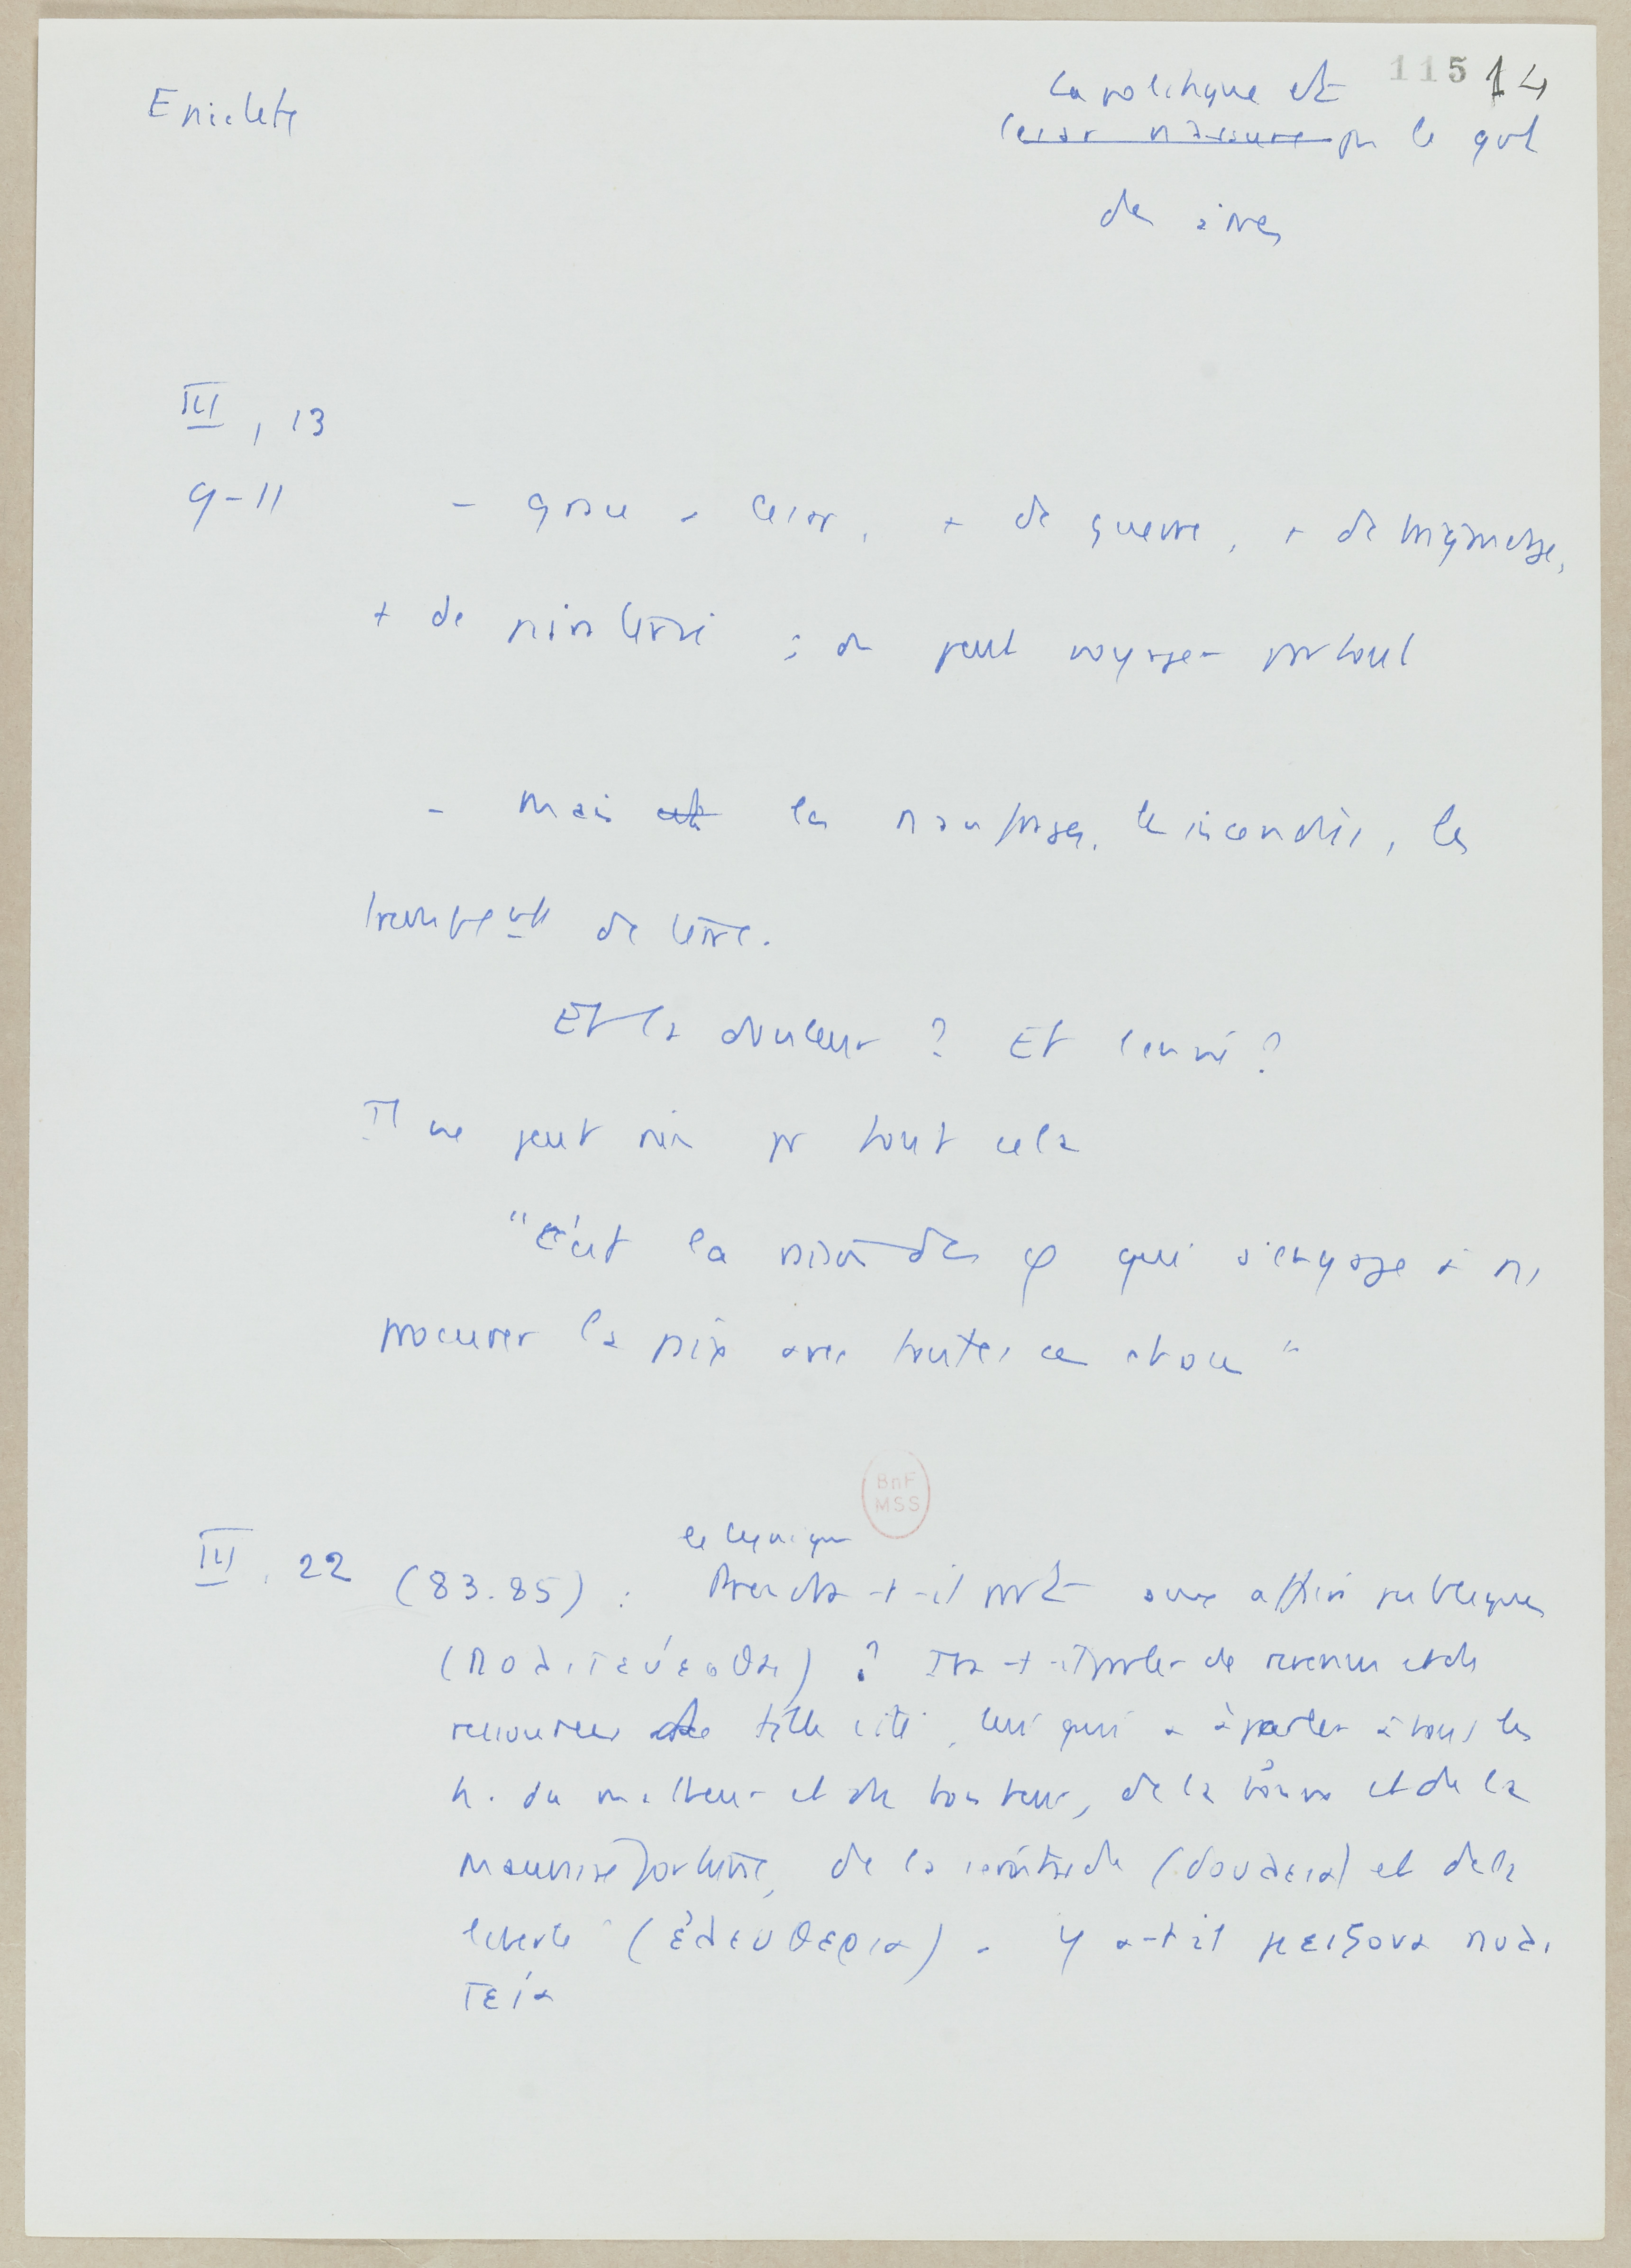 Epictete
115 14
La politique et
Cesar n'assure pr le gvt
des âmes
III, 13
9-11 - grace a Cesar, + de guerre, + de brigandage,
+ de piraterie ; on peut voyager partout
- Mais les naufrages, les incendies, les
tremblemts de terre.
Et la douleur ? Et l'envie ?
Il ne peut rien pr tout cela
"C'est la des φ qui s'engage à ns
procurer la paix avec toutes ces choses"
BnF
MSS
le Cynique
III, 22 (83.85) : Prendra-t-il part aux affaires publiques
(πολιτεύεσθαι) ? Ira-t-il parler de revenus et de
ressources telle cité, lui qui a à parler à tous les
h. du malheur et du bonheur, de la bonne et de la
mauvaise fortune, de la servitude (δουλεια) et de la
liberté (ἐλευθερια). Y a-t-il μειζονα πολι
τεία